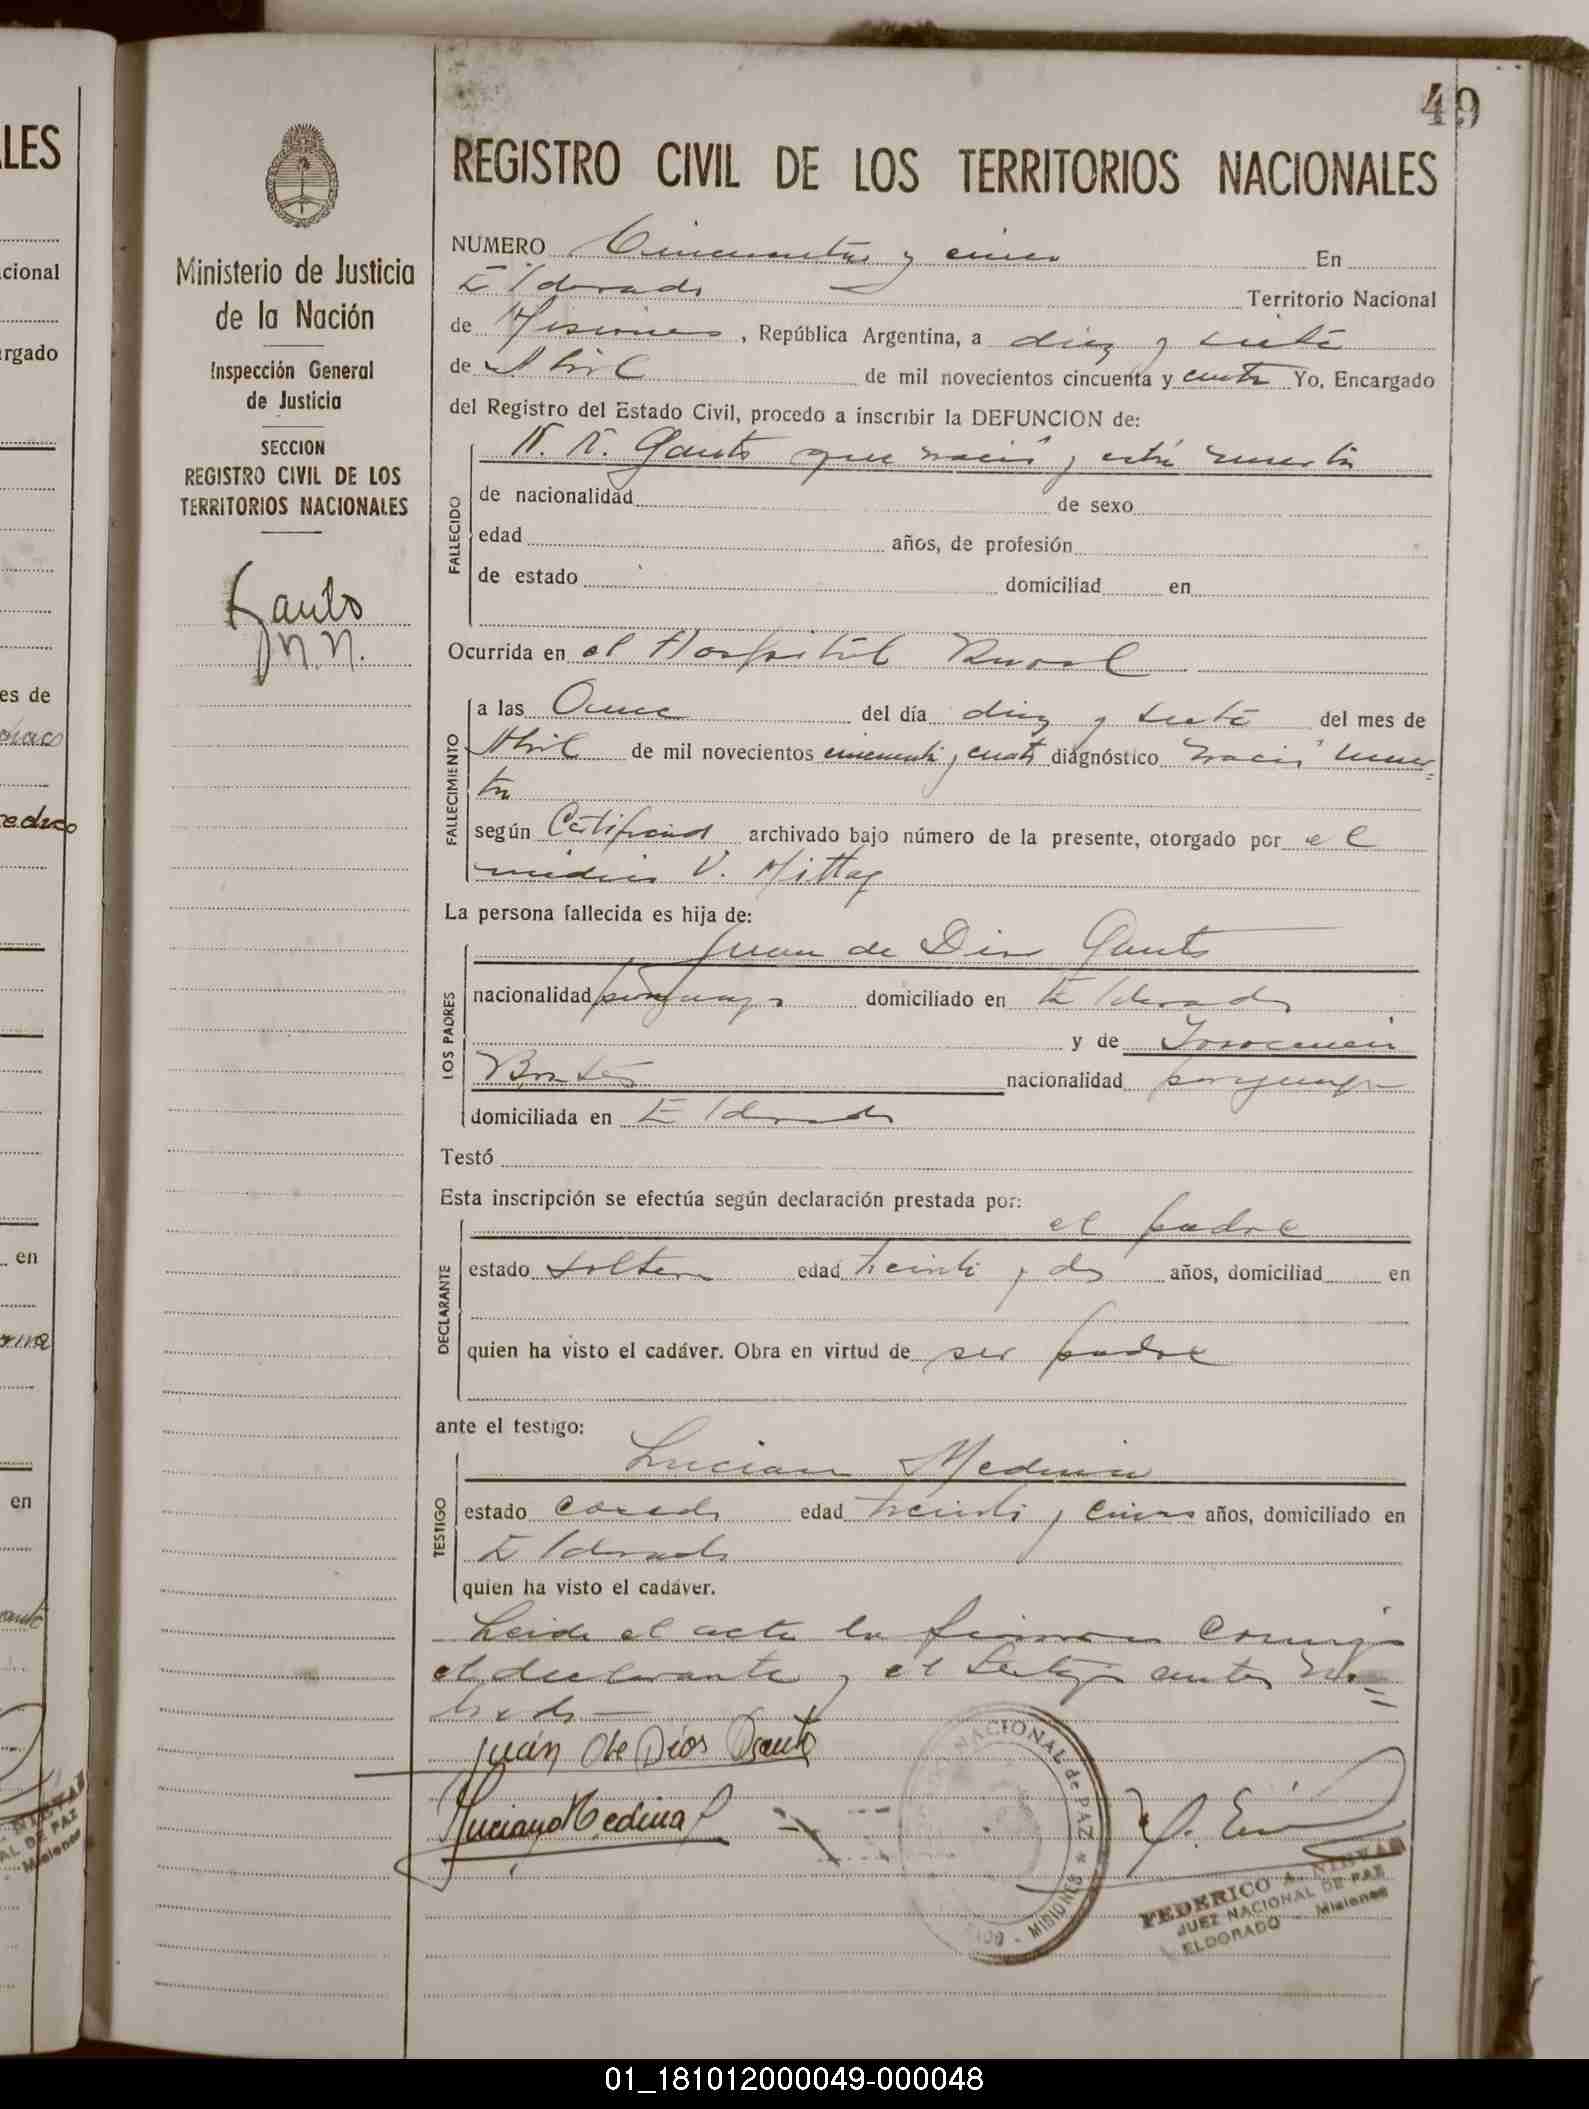 49
REGISTRO CIVIL DE LOS TERRITORIOS NACIONALES
Ministerio de Justicia
de la Nación
Inspección General
de Justicia
SECCION
REGISTRO CIVIL DE LOS
TERRITORIOS NACIONALES
Gauto
N.N.
NUMERO Cincuenta y cinco En
Eldorado Territorio Nacional
de Misiones, República Argentina, a diez y siete
de Abril de mil novecientos cincuenta y cuatro Yo, Encargado
del Registro del Estado Civil, procedo a inscribir la DEFUNCION de:
N. N. Gauto que nació y está muerta
FALLECIDO
de nacionalidad de sexo
edad años, de profesión
de estado domiciliad en
Ocurrida en el Hospital Rural
FALLECIMIENTO
a las Once del día diez y siete del mes de
Abril de mil novecientos cincuenta y cuatro diagnóstico "nació muer=
ta
según Certificado archivado bajo número de la presente, otorgado por el
médico V. Mittag
La persona fallecida es hija de:
LOS PADRES
Juan de Dios Gauto
nacionalidad paraguayo domiciliado en Eldorado
y de Inocencia
nacionalidad paraguaya
domiciliada en Eldorado
Testó
Esta inscripción se efectúa según declaración prestada por:
DECLARANTE
el padre
estado soltero edad treinta y dos años, domiciliad en
quien ha visto el cadáver. Obra en virtud de ser padre
ante el testigo:
TESTIGO
Luciano Medina
estado casado edad treinta y cinco años, domiciliado en
Eldorado
quien ha visto el cadáver.
Leida el acta la firmaron conmigo
el declarante y el testigo antes nom=
brado.—
Juán de Díos Gauto
Luciano Medina
NACIONAL de PAZ * MISIONES -
FEDERICO A.
JUEZ NACIONAL DE PAZ
ELDORADO - Misiones
LES
cional
rgado
es de
en
en
AL DE PAZ
Misiones
01_181012000049-000048